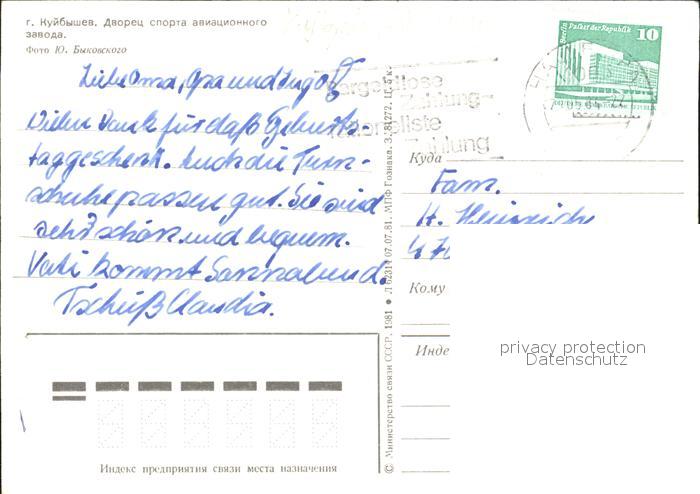 г. Куйбышев. Дворец спорта авиационного
завода.
Фото Ю. Быковского
Liebe Oma, Opa und Ingo!
Vielen Dank für daß Geburts-
taggeschenk. Auch die Turn-
schuhe passen gut. Sie sind
sehr schön und bequem.
Vati kommt Sonnabend.
Tschüß Claudia.
Berlin Palast der Republik
10
Zahlung-
Zahlung
Куда
Fam.
H. Heinrich
Кому
Инде
privacy protection
Datenschutz
© Министерство связи СССР. 1981 ● 07.07.81. МПФ Гознака. З.
Индекс предприятия связи места назначения